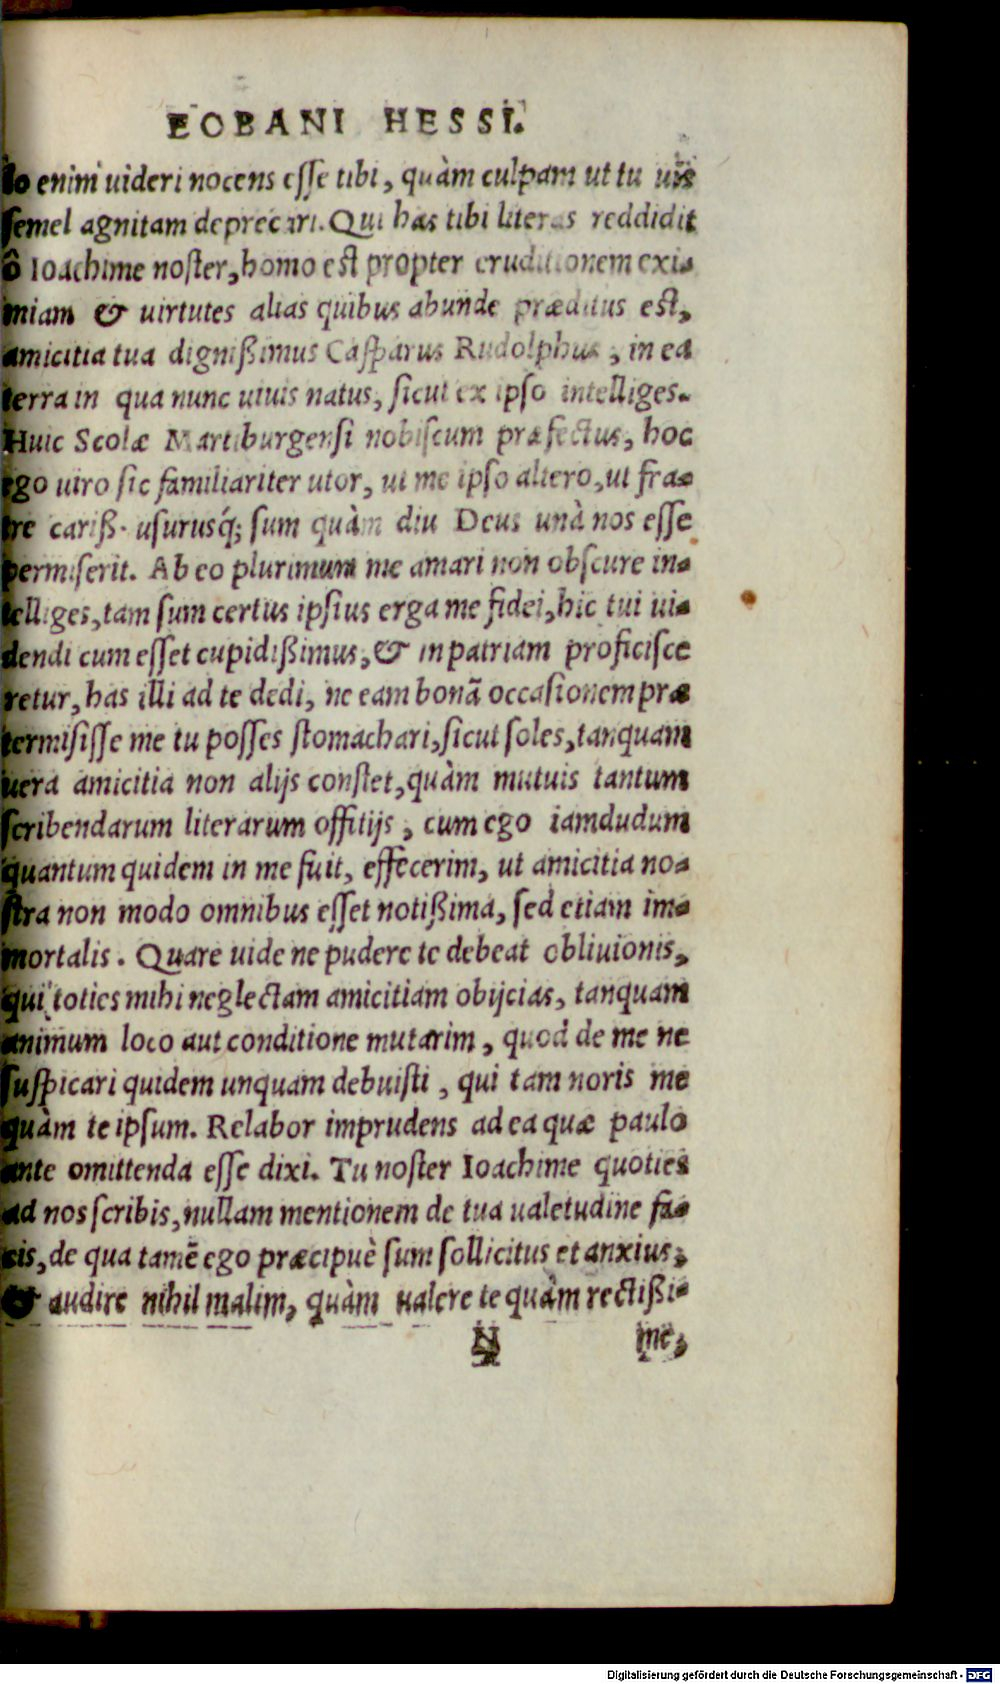 EOBANI HESSI.
lo enim uideri nocens esse tibi, quàm culpam ut tu uis
semel agnitam deprecari. Qui has tibi literas reddidit
ô Ioachime noster, homo est propter eruditionem exi-
miam & uirtutes alias quibus abunde præditus est,
amicitia tua dignißimus Casparus Rudolphus, in ea
terra in qua nunc uiuis natus, sicut ex ipso intelliges.
Huic Scolæ Martiburgensi nobiscum præfectus, hoc
ego uiro sic familiariter utor, ut me ipso altero, ut fra-
tre cariß. usurusq́; sum quàm diu Deus unà nos esse
permiserit. Ab eo plurimum me amari non obscure in-
telliges, tam sum certus ipsius erga me fidei, hic tui ui-
dendi cum esset cupidißimus, & in patriam proficisce
retur, has illi ad te dedi, ne eam bonā occasionem præ
termisisse me tu posses stomachari, sicut soles, tanquam
uera amicitia non alijs constet, quàm mutuis tantum
scribendarum literarum offitijs, cum ego iamdudum
quantum quidem in me fuit, effecerim, ut amicitia no-
stra non modo omnibus esset notißima, sed etiam im-
mortalis. Quare uide ne pudere te debeat obliuionis,
qui toties mihi neglectam amicitiam obijcias, tanquam
animum loco aut conditione mutarim, quod de me ne
suspicari quidem unquam debuisti, qui tam noris me
quàm te ipsum. Relabor imprudens ad ea quæ paulo
ante omittenda esse dixi. Tu noster Ioachime quoties
ad nos scribis, nullam mentionem de tua ualetudine fa-
cis, de qua tamē ego præcipuè sum sollicitus et anxius,
& audire nihil malim, quàm ualere te quàm rectißi-
N me,
Digitalisierung gefördert durch die Deutsche Forschungsgemeinschaft - DFG